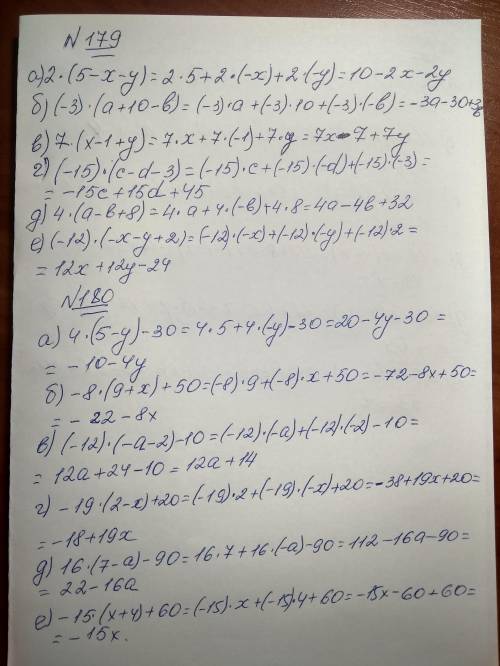 N 179
а) 2·(5-x-y)=2·5+2·(-x)+2·(-y)=10-2x-2y
б) (-3)·(a+10-b)=(-3)·a+(-3)·10+(-3)·(-b)=-3a-30+3b
в) 7·(x-1+y)=7·x+7·(-1)+7·y=7x-7+7y
г) (-15)·(c-d-3)=(-15)·c+(-15)·(-d)+(-15)·(-3)=
=-15c+15d+45
д) 4·(a-b+8)=4·a+4·(-b)+4·8=4a-4b+32
е) (-12)·(-x-y+2)=(-12)·(-x)+(-12)·(-y)+(-12)·2=
=12x+12y-24
N180
а) 4·(5-y)-30=4·5+4·(-y)-30=20-4y-30=
=-10-4y
б) -8·(9+x)+50=(-8)·9+(-8)·x+50=-72-8x+50=
=-22-8x
в) (-12)·(-a-2)-10=(-12)·(-a)+(-12)·(-2)-10=
=12a+24-10=12a+14
г) -19·(2-x)+20=(-19)·2+(-19)·(-x)+20=-38+19x+20=
=-18+19x
д) 16·(7-a)-90=16·7+16·(-a)-90=112-16a-90=
=22-16a
е) -15·(x+4)+60=(-15)·x+(-15)·4+60=-15x-60+60=
=-15x.